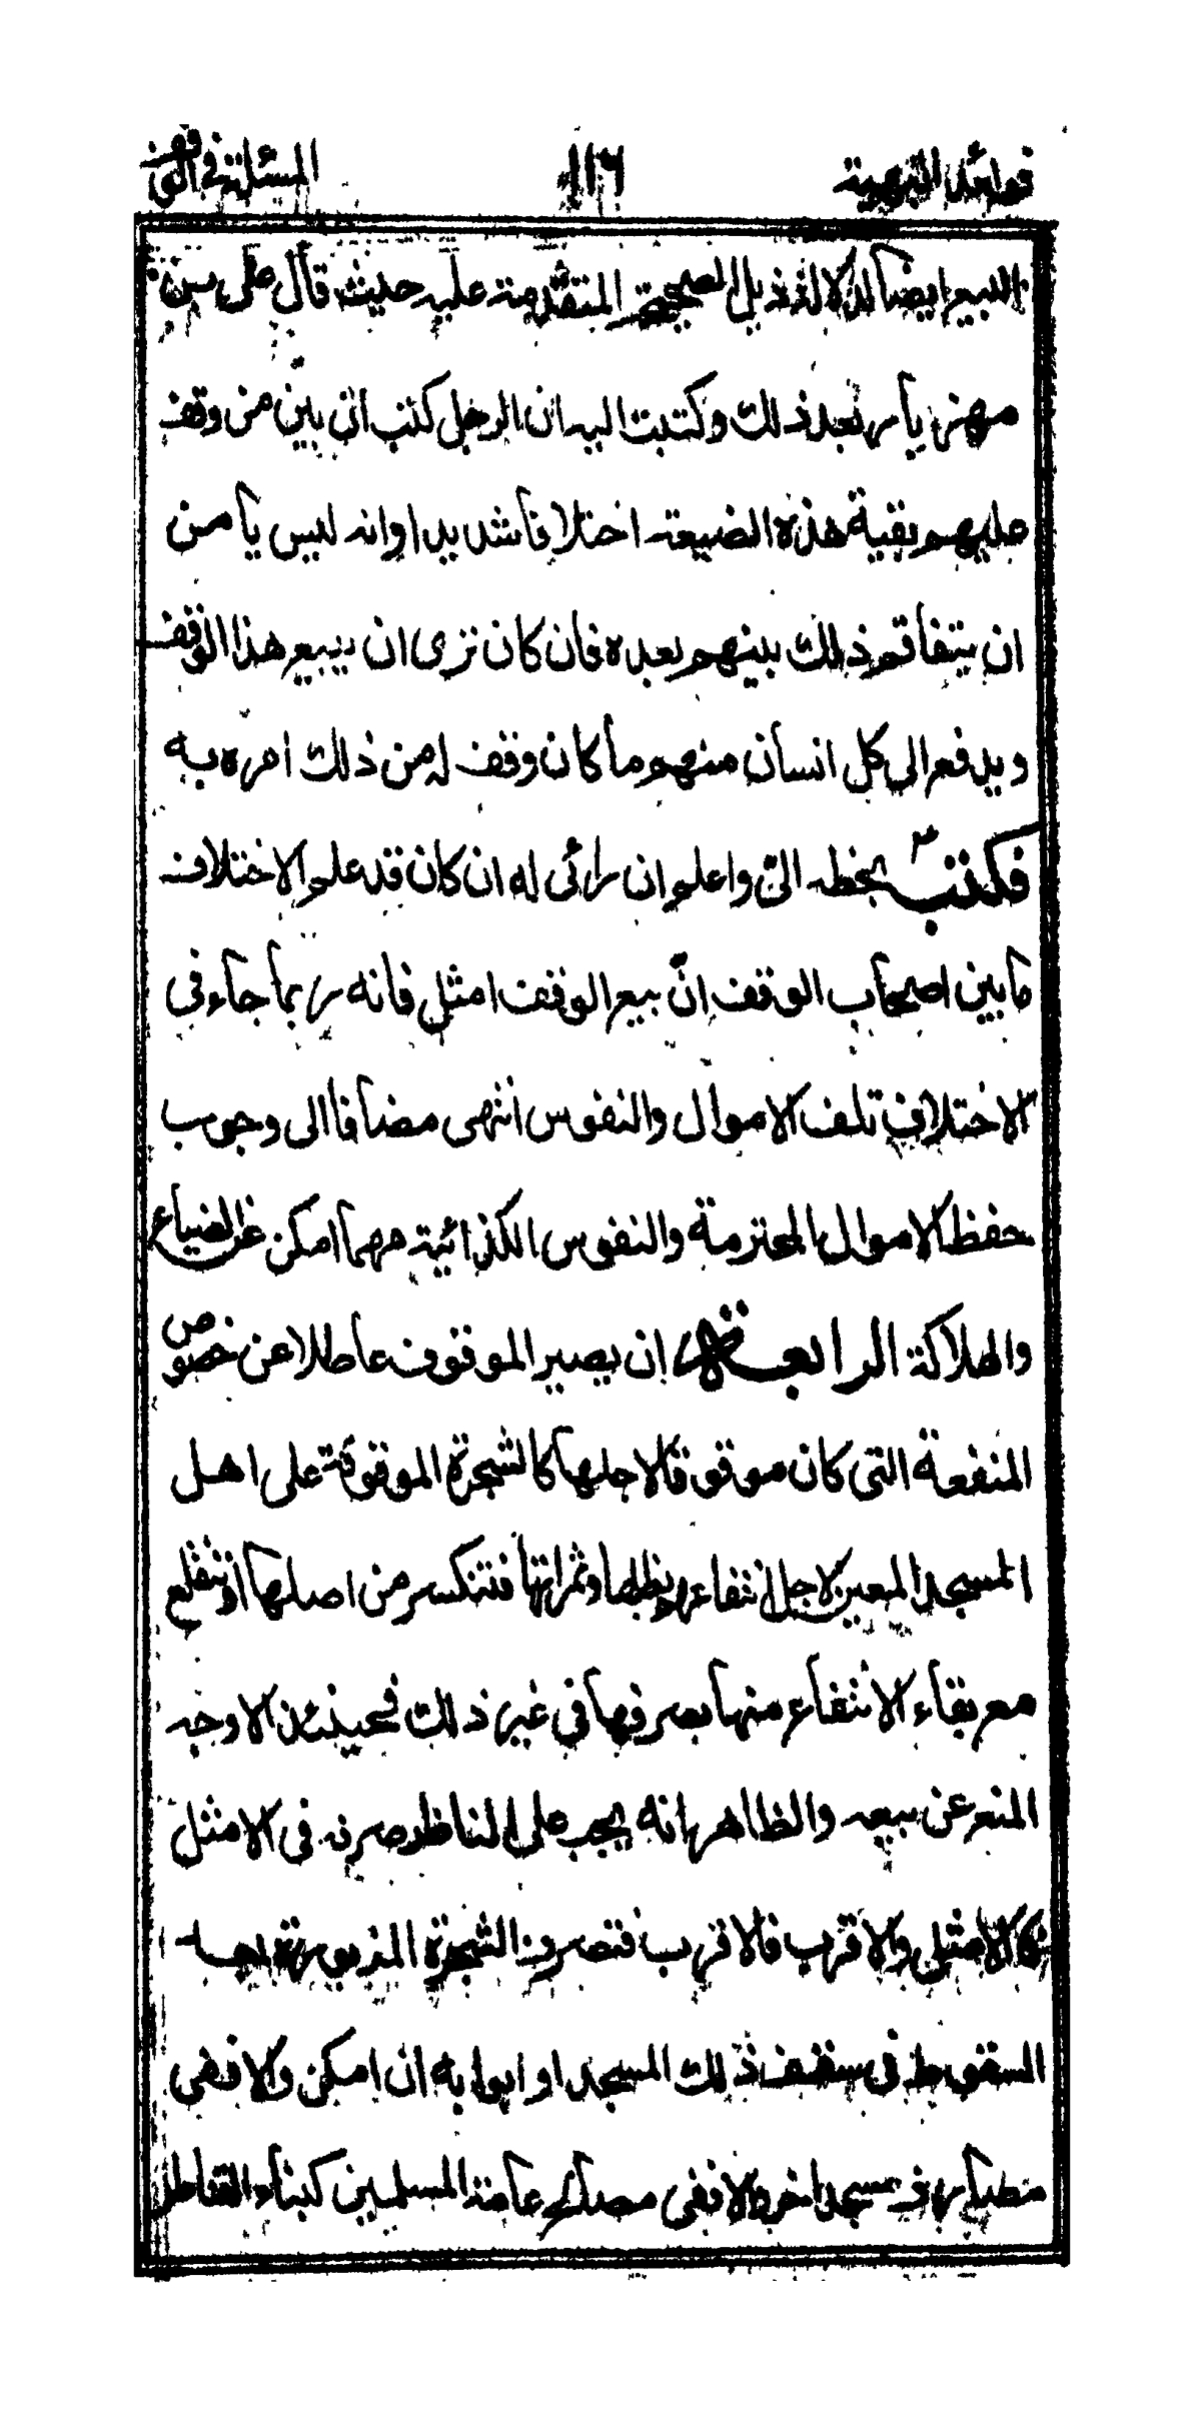 فوائد ١١٦ المسئلة في الوقف
البيع ايضا لدلالة ذيل الصحيحة المتقدمة عليه حيث قال علي بن
مهزيار بعد ذلك وكتبت اليه ان الرجل كتب ان بين من وقف
عليهم بقية هذه الضيعة اختلافا شديدا وانه ليس يامن
ان يتفاقم ذلك بينهم بعده فان كان ترى ان يبيع هذا الوقف
ويدفع الى كل انسان منهم ما كان وقف له من ذلك امره به
فكتب بخطه الىّ واعلم ان رائى له ان كان قد علم الاختلاف
ما بين اصحاب الوقف انّ بيع الوقف امثل فانه ربما جاء في
الاختلاف تلف الاموال والنفوس انتهى مضافا الى وجوب
حفظ الاموال المحترمة والنفوس الكذائية مهما امكن عن الضياع
والهلاكة الرابعة ان يصير الموقوف عاطلا عن خصوص
المنفعة التى كان موقوفا لاجلها كالشجرة الموقوفة على اهل
المسجد المعين لاجل انتفاعهم بظلها وثمراتها فتنكسر من اصلها او تنقلع
مع بقاء الانتفاع منها بصرفها في غير ذلك فحينئذ الاوجه
المنع عن بيعه والظاهر انه يجب على الناظر صرفه في الامثل
فالامثل والاقرب فالاقرب فتصرف الشجرة المزبورة بعد
السقوط في سقف ذلك المسجد او ابوابه ان امكن والا ففى
مسجد اخر والا ففى مصالح عامة المسلمين كبناء القناطر